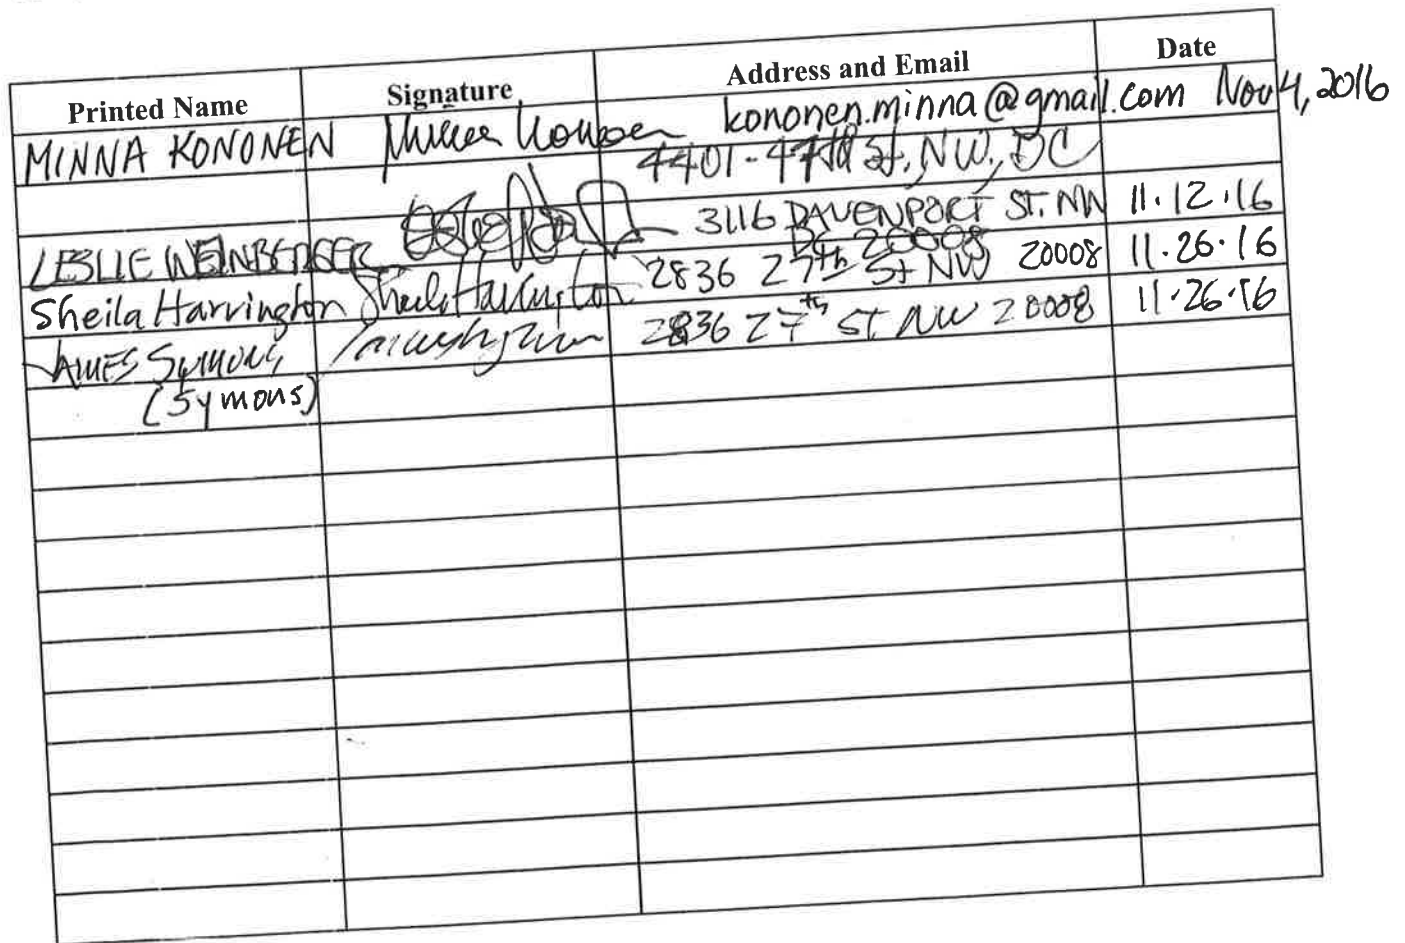 Printed Name Signature Address and Email Date
MINNA KONONEN Minna Kononen kononen.minna@gmail.com Nov 4, 2016
4401 - St, NW, DC
LESLIE WEINBERGER 3116 DAVENPORT ST. NW 11.12.16
DC 20008
Sheila Harrington Sheila Harrington 2836 27th St NW 20008 11.26.16
JAMES SYMONS 2836 27th ST NW 20008 11.26.16
(Symons)